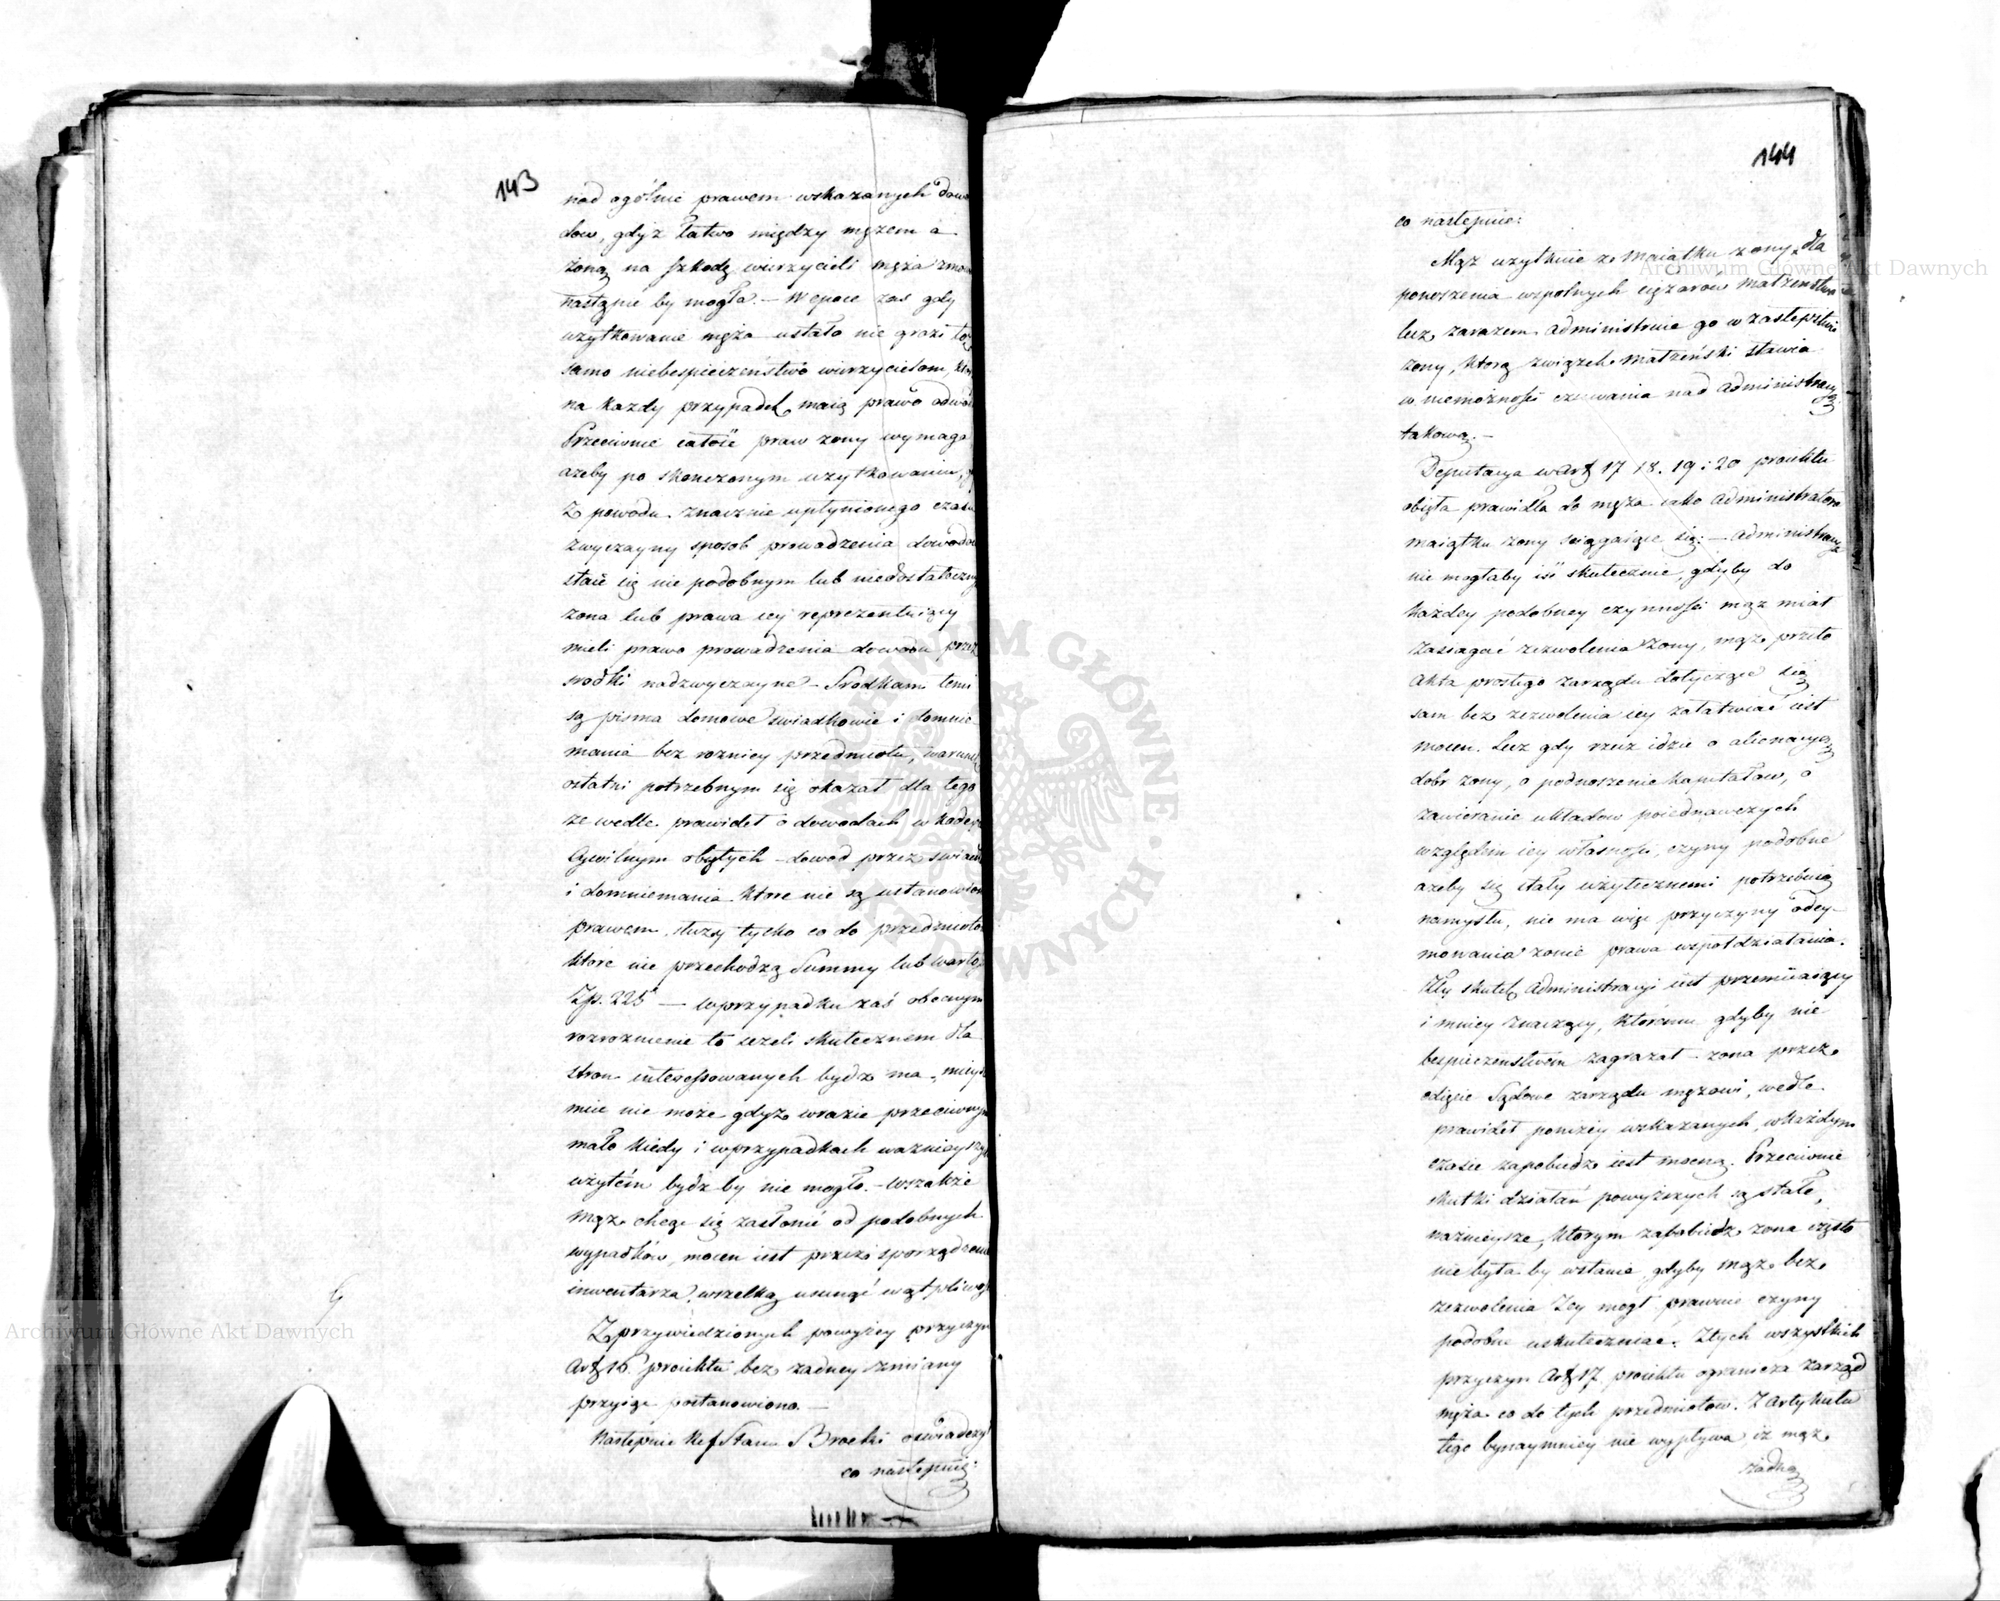 143
nad ogólnie prawem wskazanych dowo
dow, gdyż łatwo między mężem a
żoną na szkodę wierzycieli męża zmow
nastąpić by mogła. — W epoce zas gdy
użytkowanie męża ustało nie grozi toż
samo niebespieczeństwo wierzycielom,
na każdy przypadek maią prawo
Przeciwnie całość praw zony wymaga
azeby po skonczonym uzytkowaniu,
z powodu znacznie upłynionego czasu
zwyczayny sposob prowadzenia dowodow
stał się nie podobnym lub niedostateczny
zona lub prawa iey reprezentuiący
mieli prawo prowadzenia dowodu przez
srodki nadzwyczayne — Srodkami temi
są pisma domowe swiadkowie i domnie
mania bez roznicy przedmiotu, warunek
ostatni potrzebnym się okazał dla tego
ze wedle prawideł o dowodach w kodex
Cywilnym obiętych — dowod przez swiad
i domniemania ktore nie są ustanowion
prawem, służy tylko co do przedmiotow
ktore nie przechodzą Summy lub warto
Zp. 225 — w przypadku zaś obecnym
rozroznienie to iezeli skutecznem dla
stron interessowanych bydz ma, mieysc
miec nie może gdyz w razie przeciwnym
mało kiedy i w przypadkach ważnieyszych
użytém bydz by nie mogło. — wszakże
mąz chcąc się zasłonić od podobnych
wypadków, mocen iest przez sporządzenie
inwentarza, wszelką usunąć wątpliwoś
Z przywiedzionych powyżey przyczyn
Art 16. proiektu bez zadney zmiany
przyiąć postanowiono. —
Następnie Ref Stanu Brocki oświadczył
co następuie:
144
co następuie:
Mąz uzytkuie z maiątku zony dla
ponoszenia wspolnych ciężarow Małżenstwa
lecz zarazem administruie go w zastępstwie
zony, ktorą związek małżeński stawia
w niemożności czuwania nad administracyą
takową. —
Deputacya w Art 17 18. 19 i 20 proiektu
obięła prawidła do męża iako administratora
maiątku zony sciągaiące się: — Administracya
nie mogłaby iść skutecznie, gdyby do
każdey podobney czynności mąz miał
zasiągać zezwolenia zony, mąz przeto
akta prostego zarządu dotyczące się
sam bez zezwolenia iey załatwiać iest
mocen. Lecz gdy rzecz idzie o alienacyą
dobr zony, o podnoszenie kapitałow, o
zawieranie układow poiednawczych
względem iey własności, czyny podobne
azeby się stały użytecznemi potrzebuią
namysłu, nie ma więc przyczyny odey-
mowania zonie prawa współdziałania.
Zły skutek Administracyi iest przemiiaiący
i mniey znaczący, któremu gdyby nie-
bespieczeństwem zagrazał — zona przez
odięcie Sądowe zarządu męzowi, wedle
prawideł poniżey wskazanych, w każdym
czasie zapobiedz iest mocną. Przeciwnie
skutki działań powyższych są stałe,
ważnieysze, ktorym zapobiedz zona często
nie była by w stanie, gdyby mąz bez
zezwolenia Iey mogł prawnie czyny
podobne uskuteczniać. Z tych wszystkich
przyczyn Art 17 proiektu ogranicza zarząd
męża co do tych przedmiotow. Z Artykułu
tego bynaymniey nie wypływa, iż mąz
żadną
Archiwum Główne Akt Dawnych
Archiwum Główne Akt Dawnych
ARCHIWUM GŁÓWNE AKT DAWNYCH